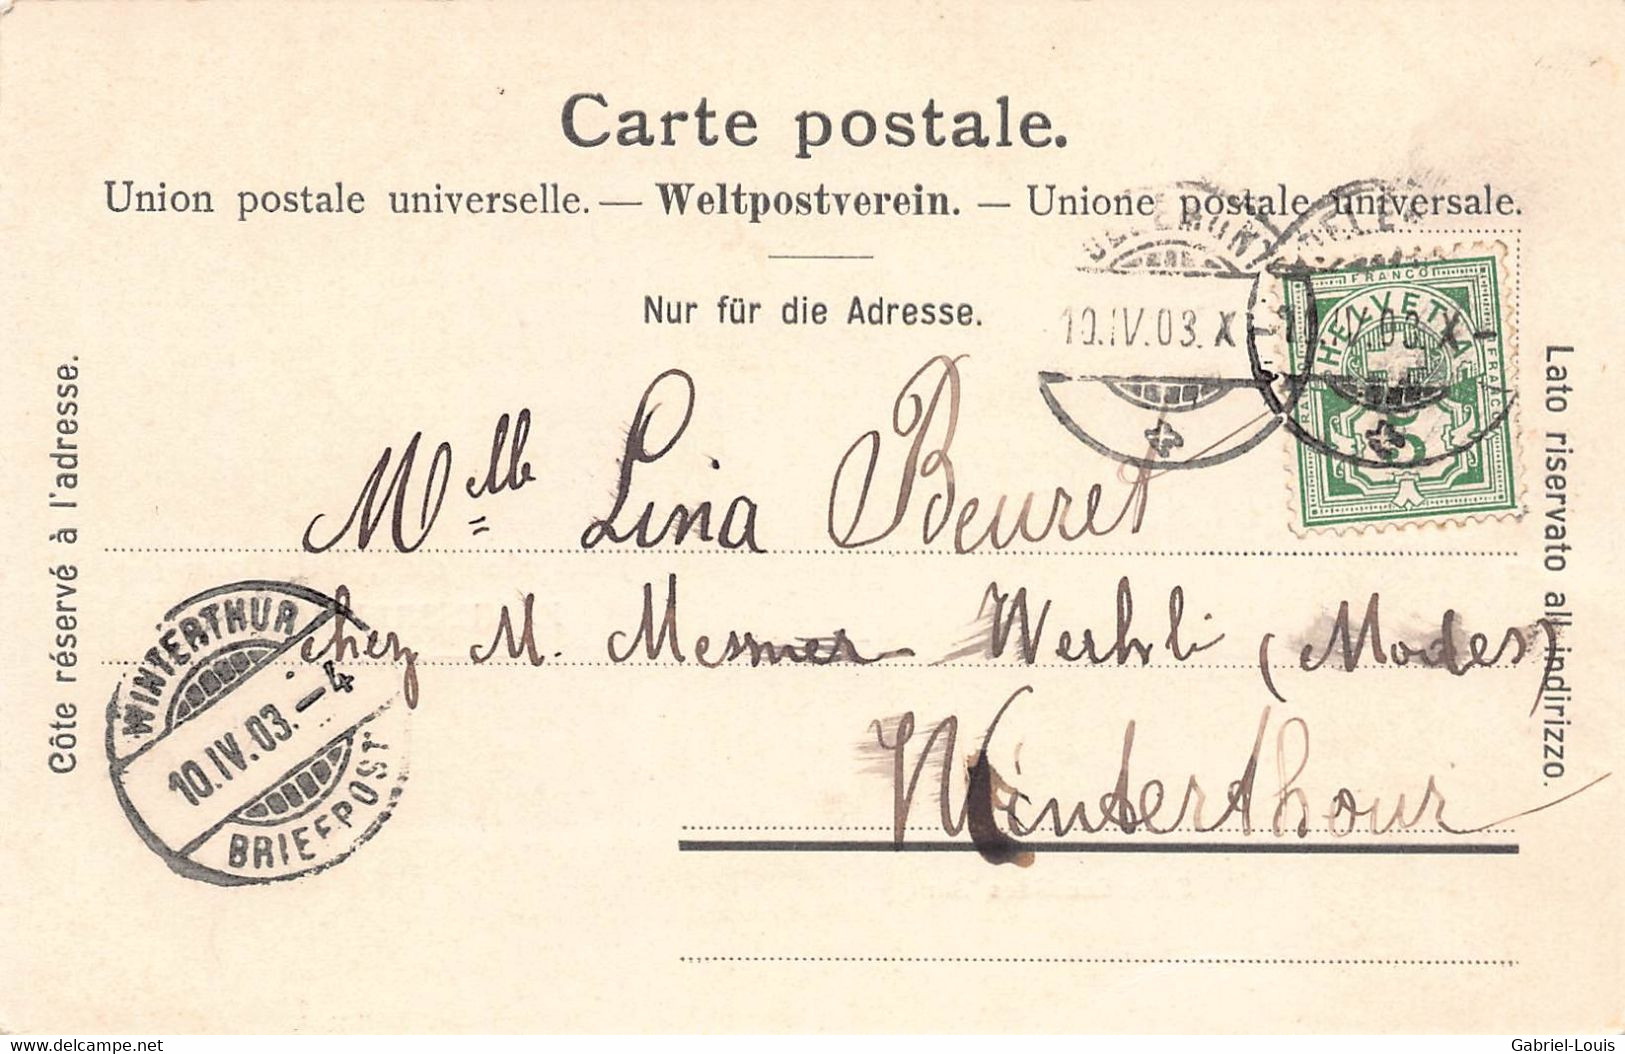 Carte postale.
Union postale universelle. — Weltpostverein. — Unione postale universale.
Nur für die Adresse.
Côte réservé à l'adresse.
Lato riservato all'indirizzo.
DELÉMONT
10.IV.03.X
DELÉ
03.X–
FRANCO
HELVETIA
FRANCO
5
Mlle Lina Beuret
chez M. Mesmer-Werhli (Modes)
Winterthour
WINTERTHUR
10.IV.03.–4
BRIEFPOST
delcampe.net
Gabriel-Louis